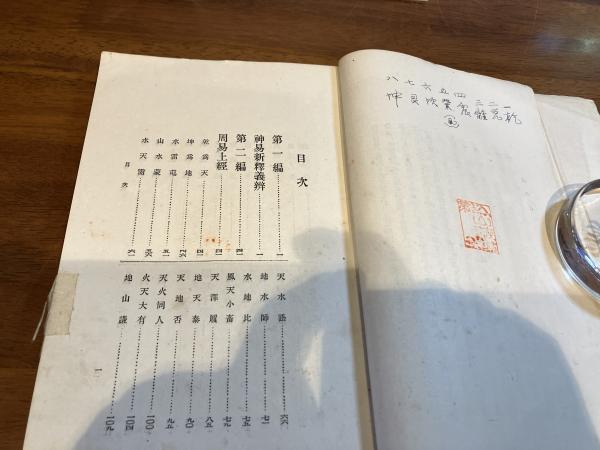 八七六五四三二一
坤艮坎巽震離兌乾
目次
第一編……一
神易新釋義辨……一
第二編……四一
周易上經……四一
乾爲天……四一
坤爲地……四六
水雷屯……五一
山水蒙……五六
水天需……六一
天水訟……六六
地水師……七一
水地比……七五
風天小畜……
天澤履……八五
地天泰……九〇
天地否……九五
天火同人……一〇〇
火天大有……一〇四
地山謙……一〇九
目次
一